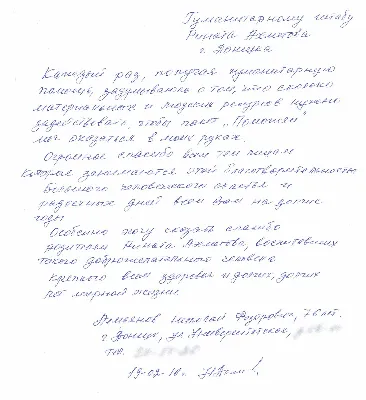 Гуманитарному штабу
Рината Ахметова
г. Донецка
Каждый раз, получая гуманитарную
помощь, задумываюсь о том, что сколько
материальных и людских ресурсов нужно
задействовать, чтобы пакет „Поможем"
мог оказаться в моих руках.
Огромное спасибо всем тем лицам
которые занимаются этой благотворительностью
большого человеческого счастья и
радостных дней всем вам на долгие
годы
Особенно хочу сказать спасибо
родителям Рината Ахметова, воспитавших
такого доброжелательного человека
Крепкого всем здоровья и долгих, долгих
лет мирной жизни.
Федоровна, 76 лет.
г. Донецк, ул Университетская,
тел.